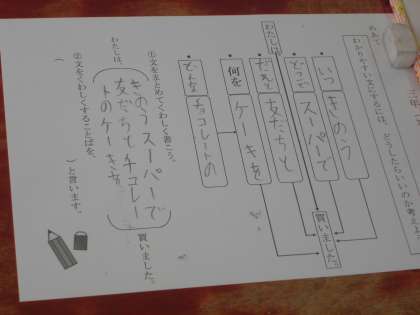 めあて
わかりやすい文にするには、どうしたらいいのか考えよ
わたしは、
いつ
きのう
どこで
スーパーで
だれと
友だちと
何を
ケーキを
どんな
チョコレートの
買いました。
①文をまとめてくわしく書こう。
わたしは、
きのうスーパーで
友だちとチョコレー
トのケーキを
買いました。
②文をくわしくすることばを、
と言います。